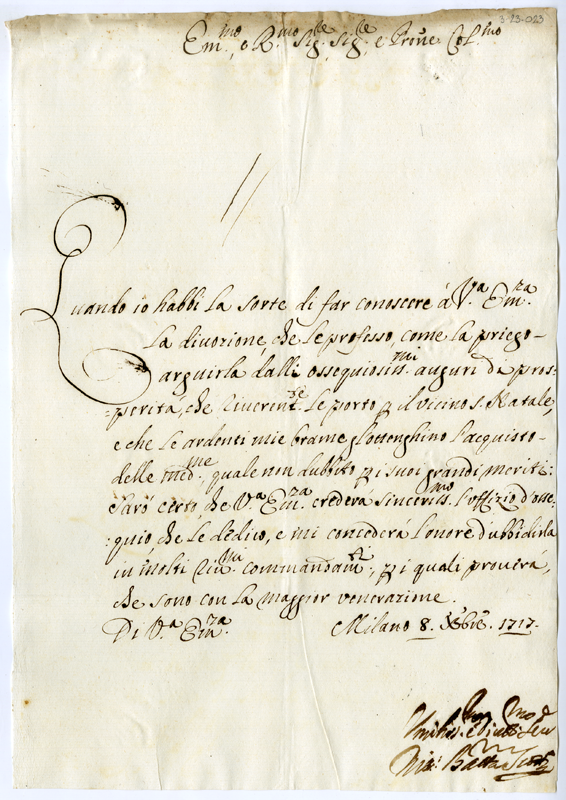 3-23-023
Em.mo, e R.mo Sig.re, Sig.re, e Prone Col.mo
Quando io habbi la sorte di far conoscere á V.a Em.za
la divozione, che le professo, come la priego
arguirla dalli ossequiosiss.mi auguri di pros=
=perità, che riverent.te le porto p il vicino s. Natale,
e che le ardenti mie brame gl'ottenghino l'acquisto
delle med.me, quale non dubbito, p i suoi grandi meriti:
Sarò certo che V.a Em.za crederà sinceriss.mo l'uffizio d'osse=
=quio che le dedico, e mi concederà l'onore d'ubbidirla
in molti riv.mi commandam.ti, p i quali proverà,
che sono con la maggior venerazione.
Di V.a Em.za Milano 8. Xbre. 1717.
Gio: Batta